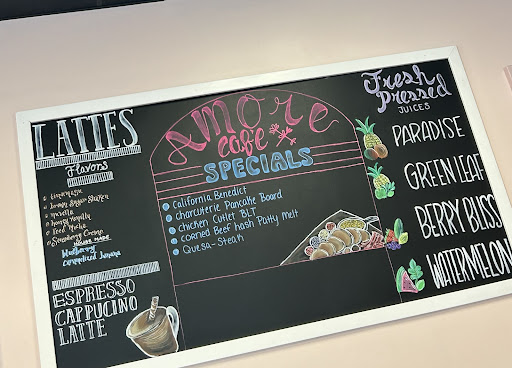 LATTES
Flavors
Tiramisu
brown sugar
Honey Vanilla
HOUSE MADE
blueberry
caramelized banana
ESPRESSO
CAPPUCINO
LATTE
AMORE
café
SPECIALS
California Benedict
charcuterie Pancake Board
chicken Cutlet BLT
corned Beef hash Patty melt
Quesa-Steak
Fresh
Pressed
JUICES
PARADISE
GREEN LEAF
BERRY BLISS
WATERMELON